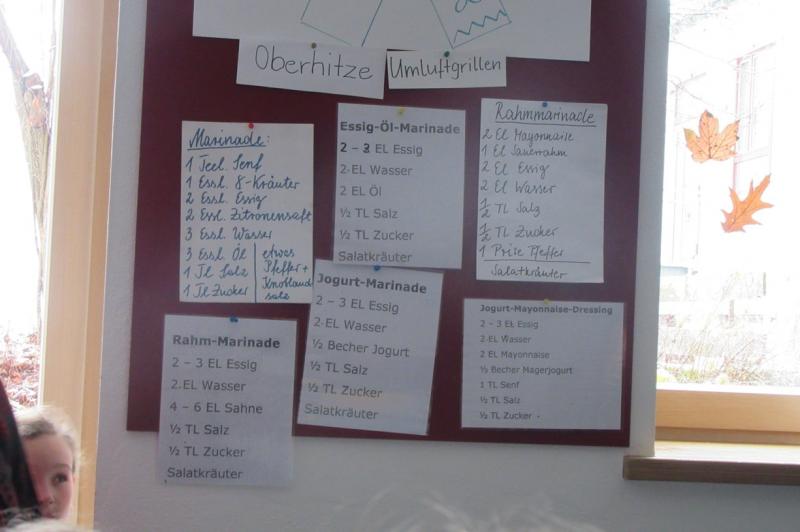 Oberhitze
Umluftgrillen
Marinade:
1 Teel. Senf
1 Essl. 8-Kräuter
2 Essl. Essig
2 Essl. Zitronensaft
3 Essl. Wasser
3 Essl. Öl
1 Tl Salz
1 Tl Zucker
etwas
Pfeffer +
Knoblauch
salz
Essig-Öl-Marinade
2 – 3 EL Essig
2 EL Wasser
2 EL Öl
½ TL Salz
½ TL Zucker
Salatkräuter
Rahmmarinade
2 El Mayonnaise
1 El Sauerrahm
2 El Essig
2 El Wasser
½ TL Salz
½ TL Zucker
1 Prise Pfeffer
Salatkräuter
Rahm-Marinade
2 – 3 EL Essig
2 EL Wasser
4 – 6 EL Sahne
½ TL Salz
½ TL Zucker
Salatkräuter
Jogurt-Marinade
2 – 3 EL Essig
2 EL Wasser
½ Becher Jogurt
½ TL Salz
½ TL Zucker
Salatkräuter
Jogurt-Mayonnaise-Dressing
2 – 3 EL Essig
2 EL Wasser
2 EL Mayonnaise
½ Becher Magerjogurt
1 TL Senf
½ TL Salz
½ TL Zucker